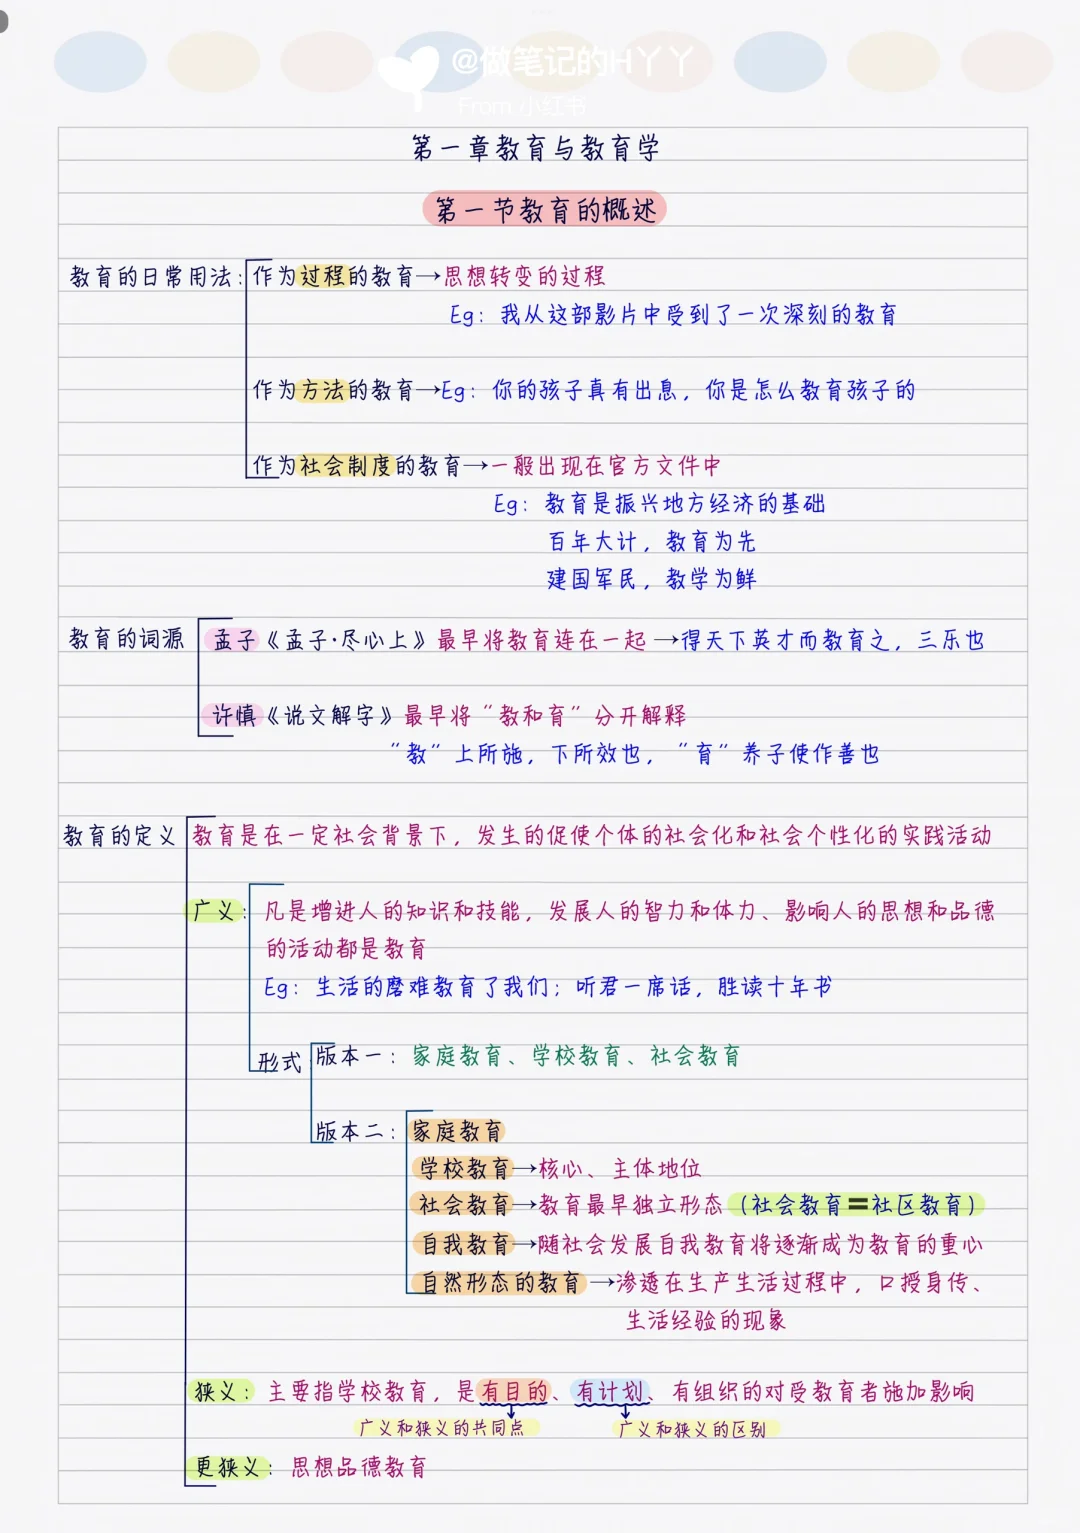 @做笔记的H丫丫
From 小红书
第一章教育与教育学
第一节教育的概述
教育的日常用法：作为过程的教育→思想转变的过程
Eg：我从这部影片中受到了一次深刻的教育
作为方法的教育→Eg：你的孩子真有出息，你是怎么教育孩子的
作为社会制度的教育→一般出现在官方文件中
Eg：教育是振兴地方经济的基础
百年大计，教育为先
建国军民，教学为鲜
教育的词源 孟子《孟子·尽心上》最早将教育连在一起→得天下英才而教育之，三乐也
许慎《说文解字》最早将“教和育”分开解释
“教”上所施，下所效也，“育”养子使作善也
教育的定义 教育是在一定社会背景下，发生的促使个体的社会化和社会个性化的实践活动
广义：凡是增进人的知识和技能，发展人的智力和体力、影响人的思想和品德
的活动都是教育
Eg：生活的磨难教育了我们；听君一席话，胜读十年书
形式 版本一：家庭教育、学校教育、社会教育
版本二：家庭教育
学校教育→核心、主体地位
社会教育→教育最早独立形态（社会教育=社区教育）
自我教育→随社会发展自我教育将逐渐成为教育的重心
自然形态的教育→渗透在生产生活过程中，口授身传、
生活经验的现象
狭义：主要指学校教育，是有目的、有计划、有组织的对受教育者施加影响
广义和狭义的共同点 广义和狭义的区别
更狭义：思想品德教育